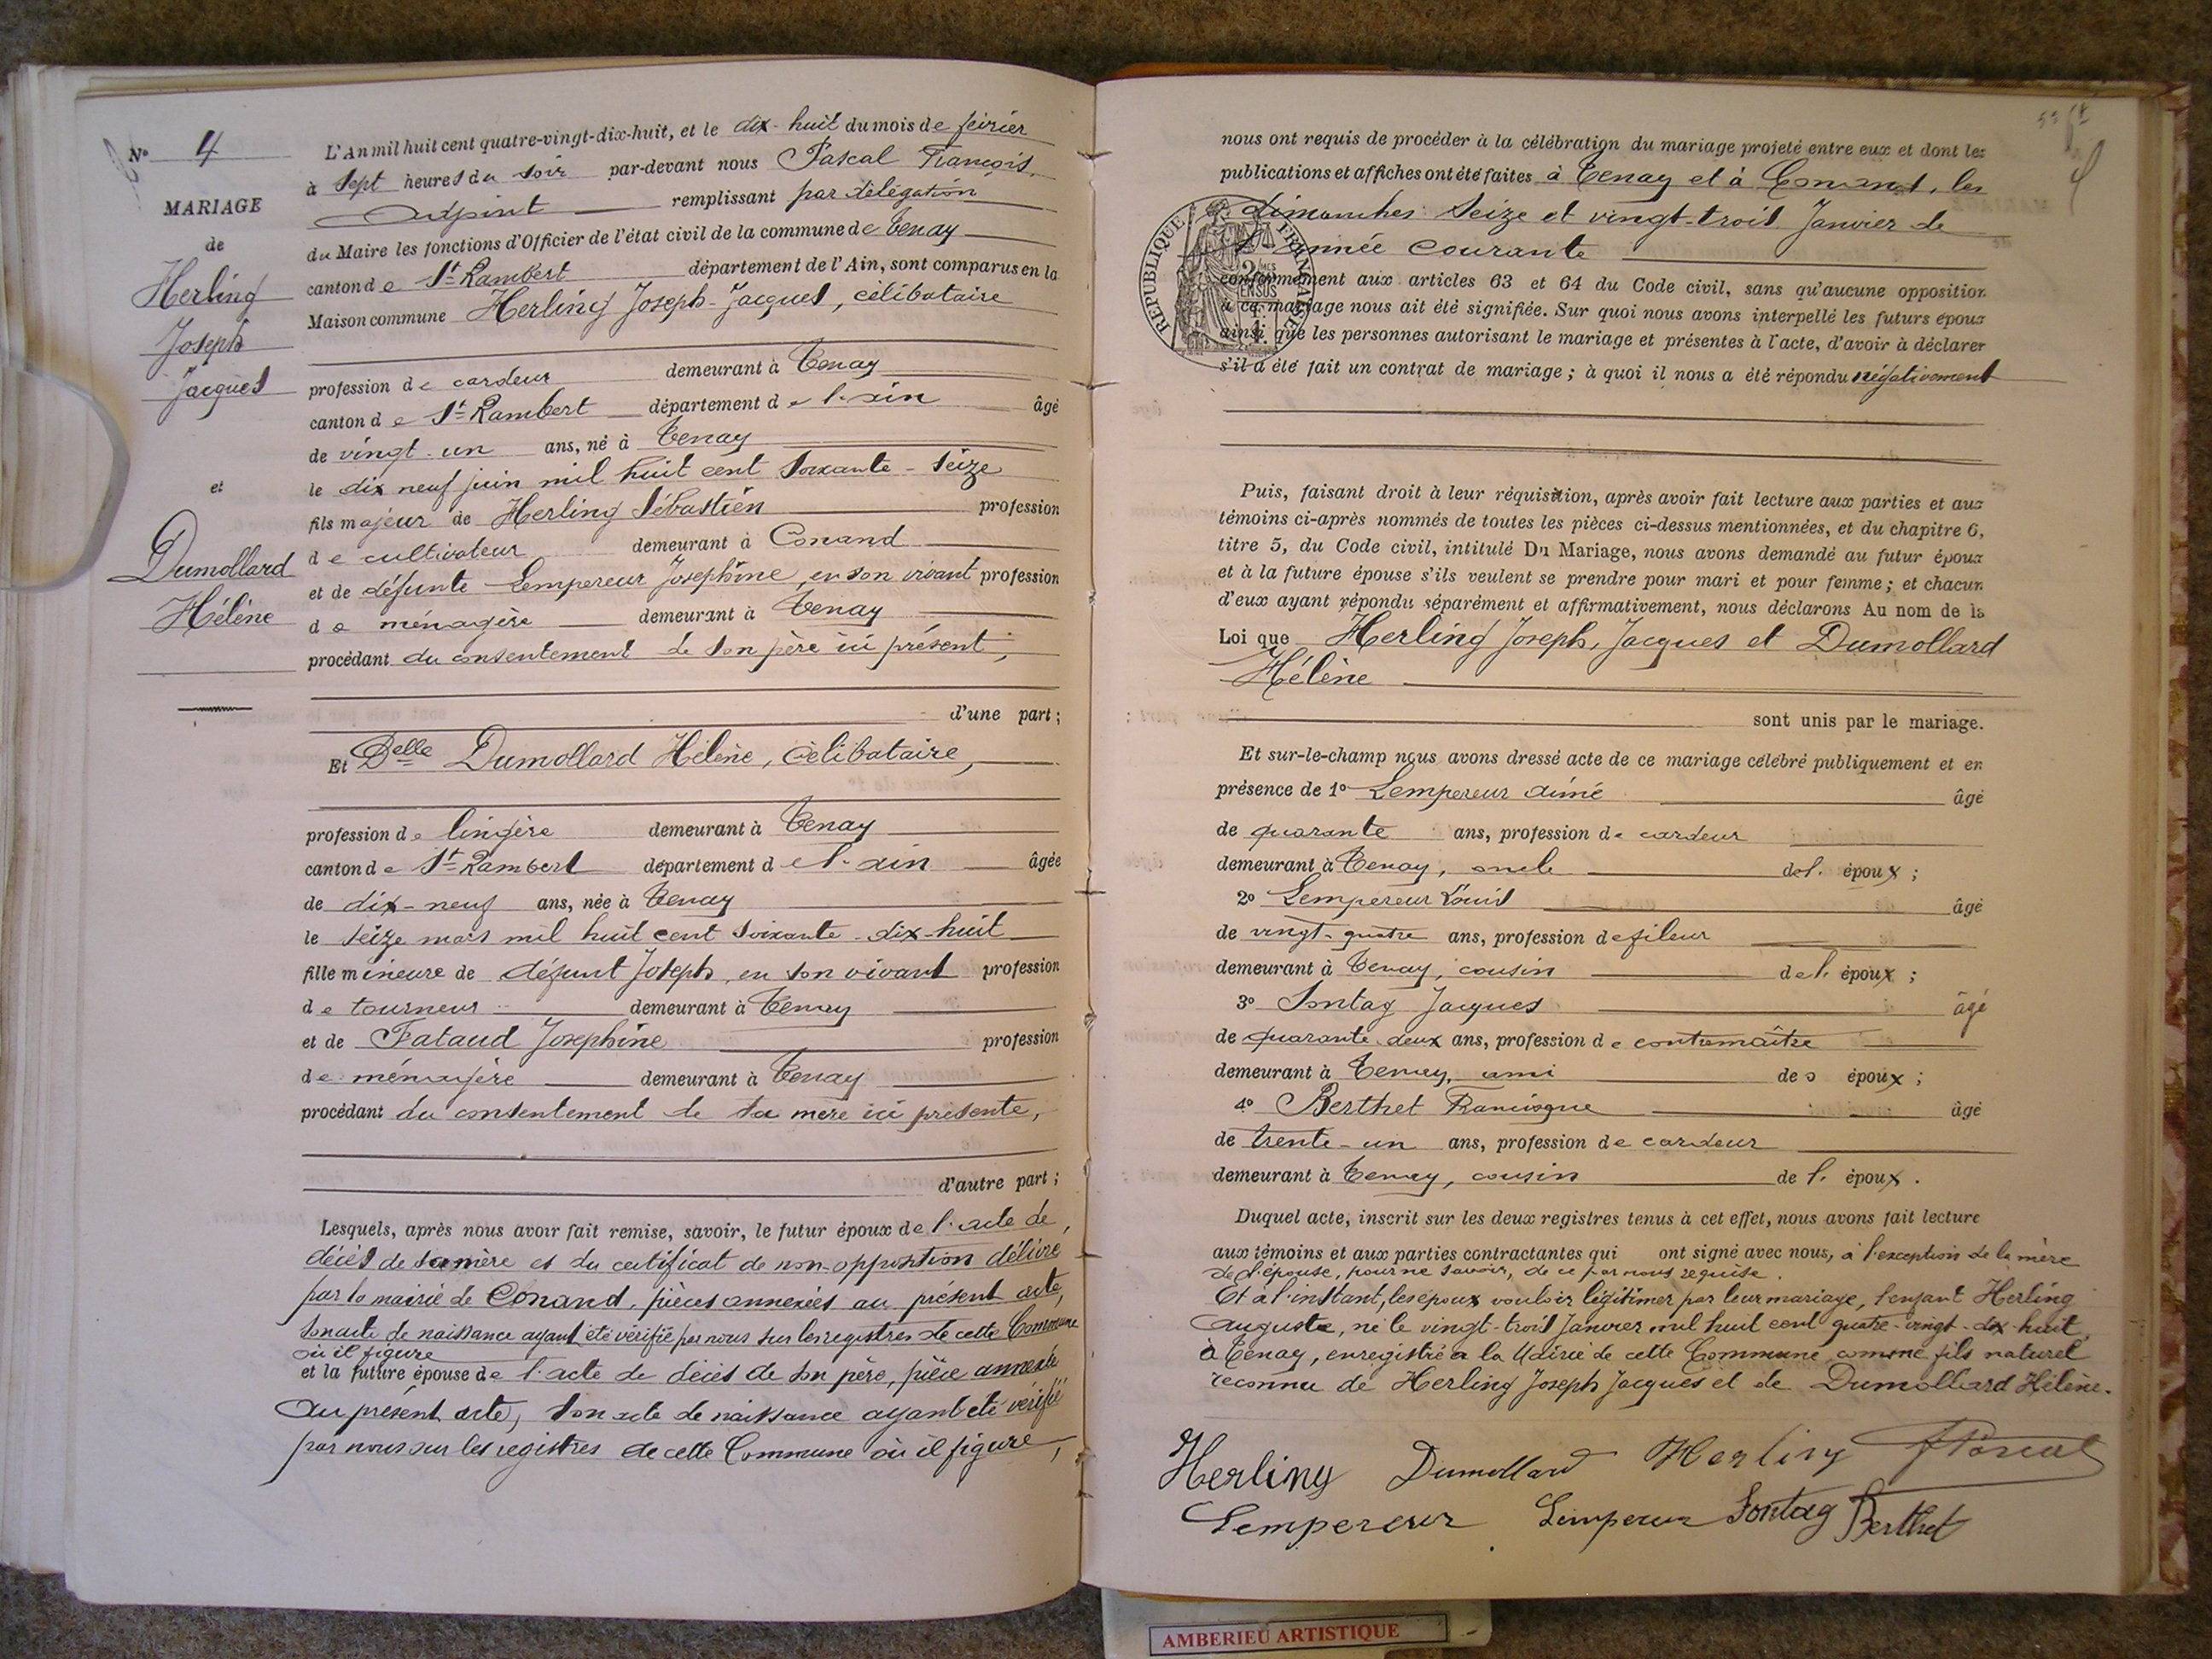 N° 4
MARIAGE
de
Herling
Joseph
Jacques
et
Dumollard
Hélène
L'An mil huit cent quatre-vingt-dix-huit, et le dix-huit du mois de février
à sept heures du soir par-devant nous Pascal François,
Adjoint remplissant par délégation
du Maire les fonctions d'Officier de l'état civil de la commune de Tenay
canton de St Rambert département de l'Ain, sont comparus en la
Maison commune Herling Joseph-Jacques, célibataire
profession de cardeur demeurant à Tenay
canton de St Rambert département de l'ain âgé
de vingt-un ans, né à Tenay
le dix neuf juin mil huit cent soixante-seize
fils majeur de Herling Sébastien profession
de cultivateur demeurant à Conand
et de défunte Lempereur Joséphine, en son vivant profession
de ménagère demeurant à Tenay
procédant du consentement de son père ici présent,
d'une part;
Et Delle Dumollard Hélène, célibataire,
profession de lingère demeurant à Tenay
canton de St Rambert département de l'ain âgée
de dix-neuf ans, née à Tenay
le seize mars mil huit cent soixante-dix-huit
fille mineure de défunt Joseph, en son vivant profession
de tourneur demeurant à Tenay
et de Fataud Joséphine profession
de ménagère demeurant à Tenay
procédant du consentement de sa mère ici présente,
d'autre part;
Lesquels, après nous avoir fait remise, savoir, le futur époux de l'acte de
décès de sa mère et du certificat de non-opposition délivré
par la mairie de Conand, pièces annexées au présent acte,
son acte de naissance ayant été vérifié par nous sur les registres de cette Commune
où il figure
et la future épouse de l'acte de décès de son père, pièce annexée
au présent acte, son acte de naissance ayant été vérifié
par nous sur les registres de cette Commune où il figure,
nous ont requis de procéder à la célébration du mariage projeté entre eux et dont les
publications et affiches ont été faites à Tenay et à Conand, les
dimanches seize et vingt-trois Janvier de
l'année courante
RÉPUBLIQUE FRANÇAISE
conformément aux articles 63 et 64 du Code civil, sans qu'aucune opposition
à ce mariage nous ait été signifiée. Sur quoi nous avons interpellé les futurs époux
ainsi que les personnes autorisant le mariage et présentes à l'acte, d'avoir à déclarer
s'il a été fait un contrat de mariage; à quoi il nous a été répondu négativement
Puis, faisant droit à leur réquisition, après avoir fait lecture aux parties et aux
témoins ci-après nommés de toutes les pièces ci-dessus mentionnées, et du chapitre 6,
titre 5, du Code civil, intitulé Du Mariage, nous avons demandé au futur époux
et à la future épouse s'ils veulent se prendre pour mari et pour femme; et chacun
d'eux ayant répondu séparément et affirmativement, nous déclarons Au nom de la
Loi que Herling Joseph, Jacques et Dumollard
Hélène
sont unis par le mariage.
Et sur-le-champ nous avons dressé acte de ce mariage célébré publiquement et en
présence de 1° Lempereur Aimé âgé
de quarante ans, profession de cardeur
demeurant à Tenay, oncle de l' époux;
2° Lempereur Louis âgé
de vingt-quatre ans, profession de fileur
demeurant à Tenay, cousin de l' époux;
3° Sontag Jacques âgé
de quarante deux ans, profession de contremaître
demeurant à Tenay, ami des époux;
4° Berthet Francisque âgé
de trente-un ans, profession de cardeur
demeurant à Tenay, cousin de l' époux.
Duquel acte, inscrit sur les deux registres tenus à cet effet, nous avons fait lecture
aux témoins et aux parties contractantes qui ont signé avec nous, à l'exception de la mère
de l'épouse, pour ne savoir, de ce par nous requise.
Et à l'instant, les époux vouloir légitimer par leur mariage, l'enfant Herling
Auguste, né le vingt-trois Janvier mil huit cent quatre-vingt-dix-huit,
à Tenay, enregistré à la Mairie de cette Commune comme fils naturel
reconnu de Herling Joseph Jacques et de Dumollard Hélène.
Herling Dumollard Herling Pascal
Lempereur Lempereur Sontag Berthet
AMBERIEU ARTISTIQUE